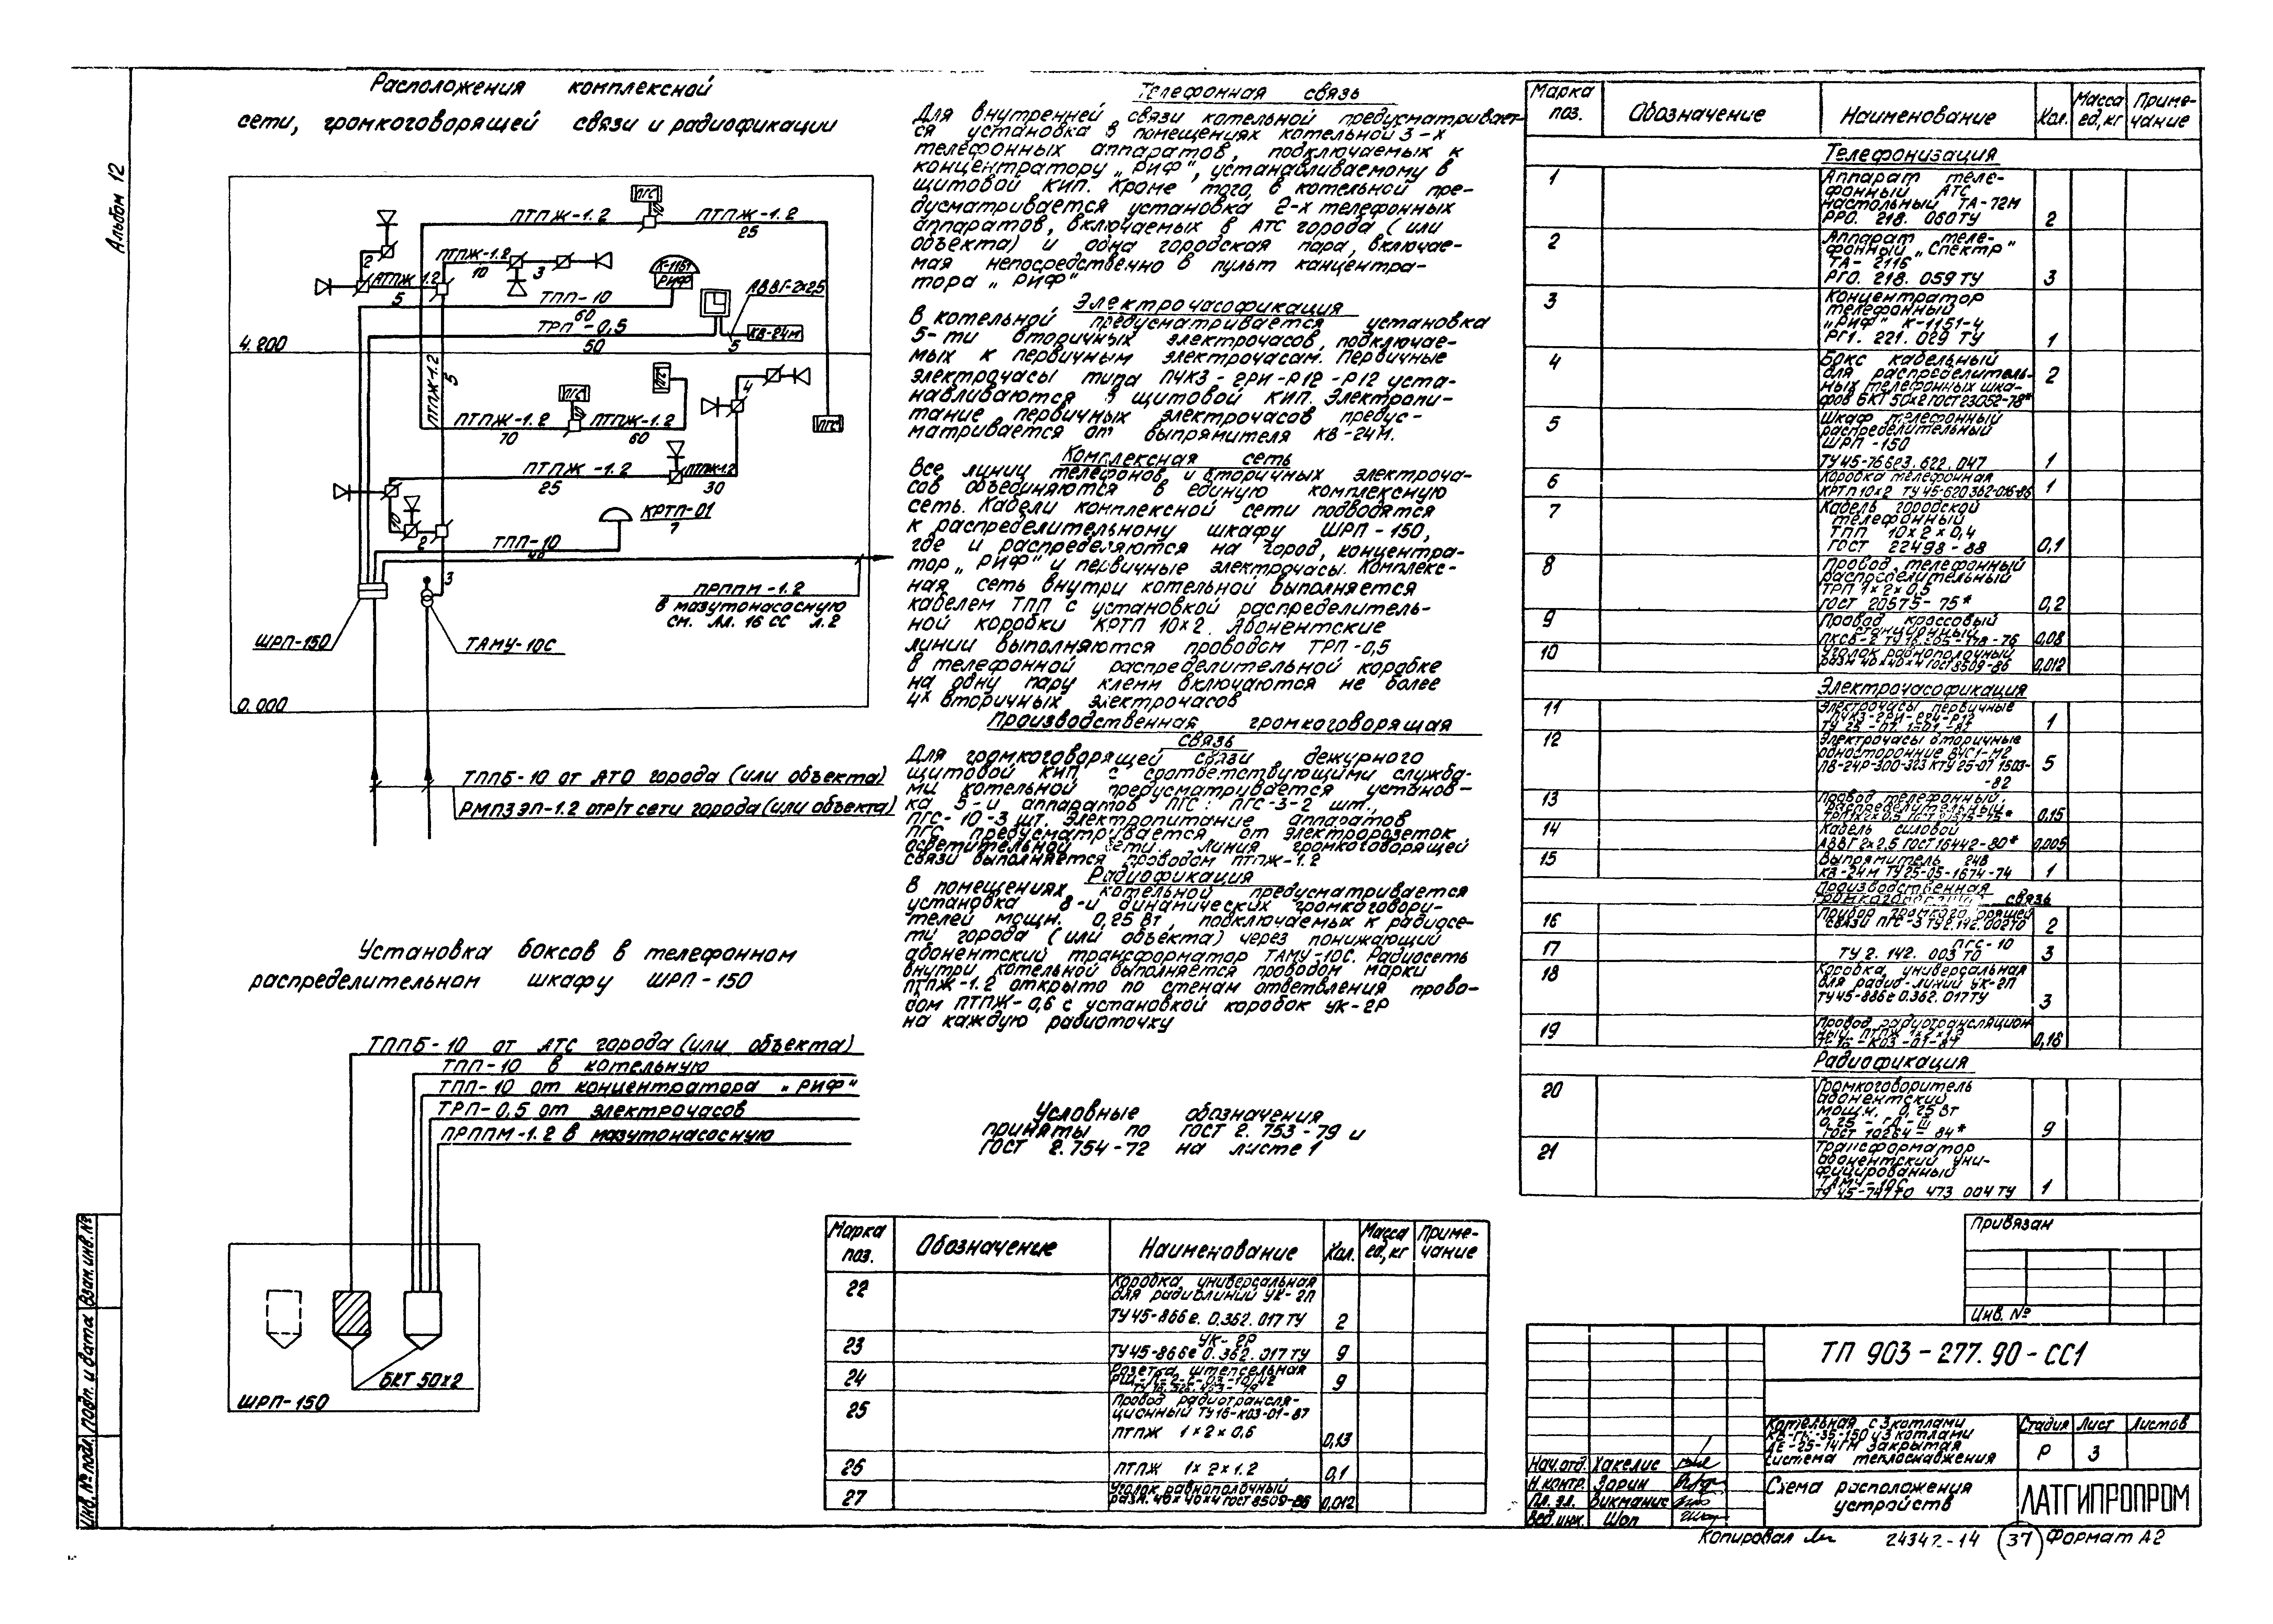 Альбом 12
Расположения комплексной
сети, громкоговорящей связи и радиофикации
ПГС
ПТПЖ-1.2
ПТПЖ-1.2
25
2
ПТПЖ-1.2
10
3
ПТПЖ-1.2
5
К-1151
РИФ
АВВГ-2х2,5
ТПП-10
60
ТРП-0,5
50
5
КВ-24М
4.200
ПТПЖ-1.2
5
ПГС
ПГС
4
ПТПЖ-1.2
70
ПТПЖ-1.2
60
ПГС
ПТПЖ-1.2
25
ПТПЖ-1.2
30
КРТП-01
7
2
ТПП-10
40
3
ПРППМ-1.2
в мазутонасосную
см. Ал. 16 СС л.2
ШРП-150
ТАМУ-10С
0.000
ТППБ-10 от АТО города (или объекта)
РМПЗЭП-1.2 от Р/Т сети города (или объекта)
Установка боксов в телефонном
распределительном шкафу ШРП-150
ТППБ-10 от АТС города (или объекта)
ТПП-10 в котельную
ТПП-10 от концентратора „РИФ"
ТРП-0,5 от электрочасов
ПРППМ-1.2 в мазутонасосную
БКТ 50х2
ШРП-150
Телефонная связь
Для внутренней связи котельной предусматривает-
ся установка в помещениях котельной 3-х
телефонных аппаратов, подключаемых к
концентратору „РИФ", устанавливаемому в
щитовой КИП. Кроме того, в котельной пре-
дусматривается установка 2-х телефонных
аппаратов, включаемых в АТС города (или
объекта) и одна городская пара, включае-
мая непосредственно в пульт концентра-
тора „РИФ"
Электрочасофикация
В котельной предусматривается установка
5-ти вторичных электрочасов, подключае-
мых к первичным электрочасам. Первичные
электрочасы типа ПЧК3-2РИ-Р12-Р12 уста-
навливаются в щитовой КИП. Электропи-
тание первичных электрочасов предус-
матривается от выпрямителя КВ-24М.
Комплексная сеть
Все линии телефонов и вторичных электроча-
сов объединяются в единую комплексную
сеть. Кабели комплексной сети подводятся
к распределительному шкафу ШРП-150,
где и распределяются на город, концентра-
тор „РИФ" и первичные электрочасы. Комплекс-
ная сеть внутри котельной выполняется
кабелем ТПП с установкой распределитель-
ной коробки КРТП 10х2. Абонентские
линии выполняются проводом ТРП-0,5
В телефонной распределительной коробке
на одну пару клемм включаются не более
4х вторичных электрочасов
Производственная громкоговорящая
связь
Для громкоговорящей связи дежурного
щитовой КИП с соответствующими служба-
ми котельной предусматривается установ-
ка 5-и аппаратов ПГС: ПГС-3-2 шт.,
ПГС-10-3 шт. Электропитание аппаратов
ПГС предусматривается от электророзеток
осветительной сети. Линия громкоговорящей
связи выполняется проводом ПТПЖ-1.2
Радиофикация
В помещениях котельной предусматривается
установка 8-и динамических громкоговори-
телей мощн. 0,25 Вт, подключаемых к радиосе-
ти города (или объекта) через понижающий
абонентский трансформатор ТАМУ-10С. Радиосеть
внутри котельной выполняется проводом марки
ПТПЖ-1.2 открыто по стенам ответвления прово-
дом ПТПЖ-0,6 с установкой коробок УК-2Р
на каждую радиоточку
Условные обозначения
приняты по ГОСТ 2.753-79 и
ГОСТ 2.754-72 на листе 1
Марка поз. Обозначение Наименование Кол. Масса ед,кг Приме-чание
Телефонизация
1 Аппарат теле-
фонный АТС
настольный ТА-72М
РРО. 218. 060 ТУ 2
2 Аппарат теле-
фонный „Спектр"
ТА-2116
РГО. 218. 059 ТУ 3
3 Концентратор
телефонный
„РИФ" К-1151-4
РГ1. 221. 029 ТУ 1
4 Бокс кабельный
для распределитель-
ных телефонных шка-
фов БКТ 50х2 ГОСТ 23052-78* 2
5 Шкаф телефонный
распределительный
ШРП-150
ТУ45-766е3.622.047 1
6 Коробка телефонная
КРТП 10х2 ТУ 45-620 362-016-86 1
7 Кабель городской
телефонный
ТПП 10х2х0,4
ГОСТ 22498-88 0,1
8 Провод телефонный
распределительный
ТРП 1х2х0,5
ГОСТ 20575-75* 0,2
9 Провод кроссовый
станционный
0,08
10 Уголок равнополочный
разм 40х40х4 ГОСТ 8509-86 0,012
Электрочасофикация
11 Электрочасы первичные
1
12 Электрочасы вторичные
односторонние ВЧС1-М2
ПВ-24Р-300-323 КТУ 25-07 1503-
-82 5
13 Провод телефонный
распределительный
0,15
14 Кабель силовой
АВВГ 2х2,5 ГОСТ 16442-80* 0,005
15 Выпрямитель 24В
КВ-24М ТУ 25-05-1674-74 1
Производственная
громкоговорящая связь
16 Прибор громкоговорящей
связи ПГС-3 ТУ2.142.002ТО 2
17 ПГС-10
ТУ 2. 142. 003 ТО 3
18 Коробка универсальная
для радио-линий УК-2П
ТУ45-886е 0.362. 017ТУ 3
19 Провод радиотрансляцион
ный ПТПЖ 1х2х1,2
ТУ16-К03-01-87 0,16
Радиофикация
20 Громкоговоритель
абонентский
мощн. 0,25 Вт
0,25-ГД-III
ГОСТ 10264-84* 9
21 Трансформатор
абонентский уни-
фицированный
ТАМУ-10С
ТУ 45-74ТТО 473 004 ТУ 1
Марка поз. Обозначение Наименование Кол. Масса ед,кг Приме-чание
22 Коробка универсальная
для радиолиний УК-2П
ТУ45-866е. 0.362. 017 ТУ 2
23 УК-2Р
ТУ45-866е 0.362. 017 ТУ 9
24 Розетка штепсельная
9
25 Провод радиотрансля-
ционный ТУ16-К03-01-87
ПТПЖ 1х2х0,6 0,13
26 ПТПЖ 1х2х1.2 0,1
27 Уголок равнополочный
разм. 40х40х4 ГОСТ 8509-86 0,012
Привязан
Инв. №
ТП 903-277.90-СС1
Котельная с 3 котлами
КВ-ГМ-35-150 и 3 котлами
ДЕ-25-14ГМ Закрытая
система теплоснабжения
Стадия Лист Листов
Р 3
Нач.отд. Хакелис
Н.контр. Зорин
Гл. эл. Викмание
Вед.инж. Шоп
Схема расположения
устройств
ЛАТГИПРОПРОМ
Копировал
24347-14 37 Формат А2
Инв. № подл. Подп. и дата Взам. инв. №